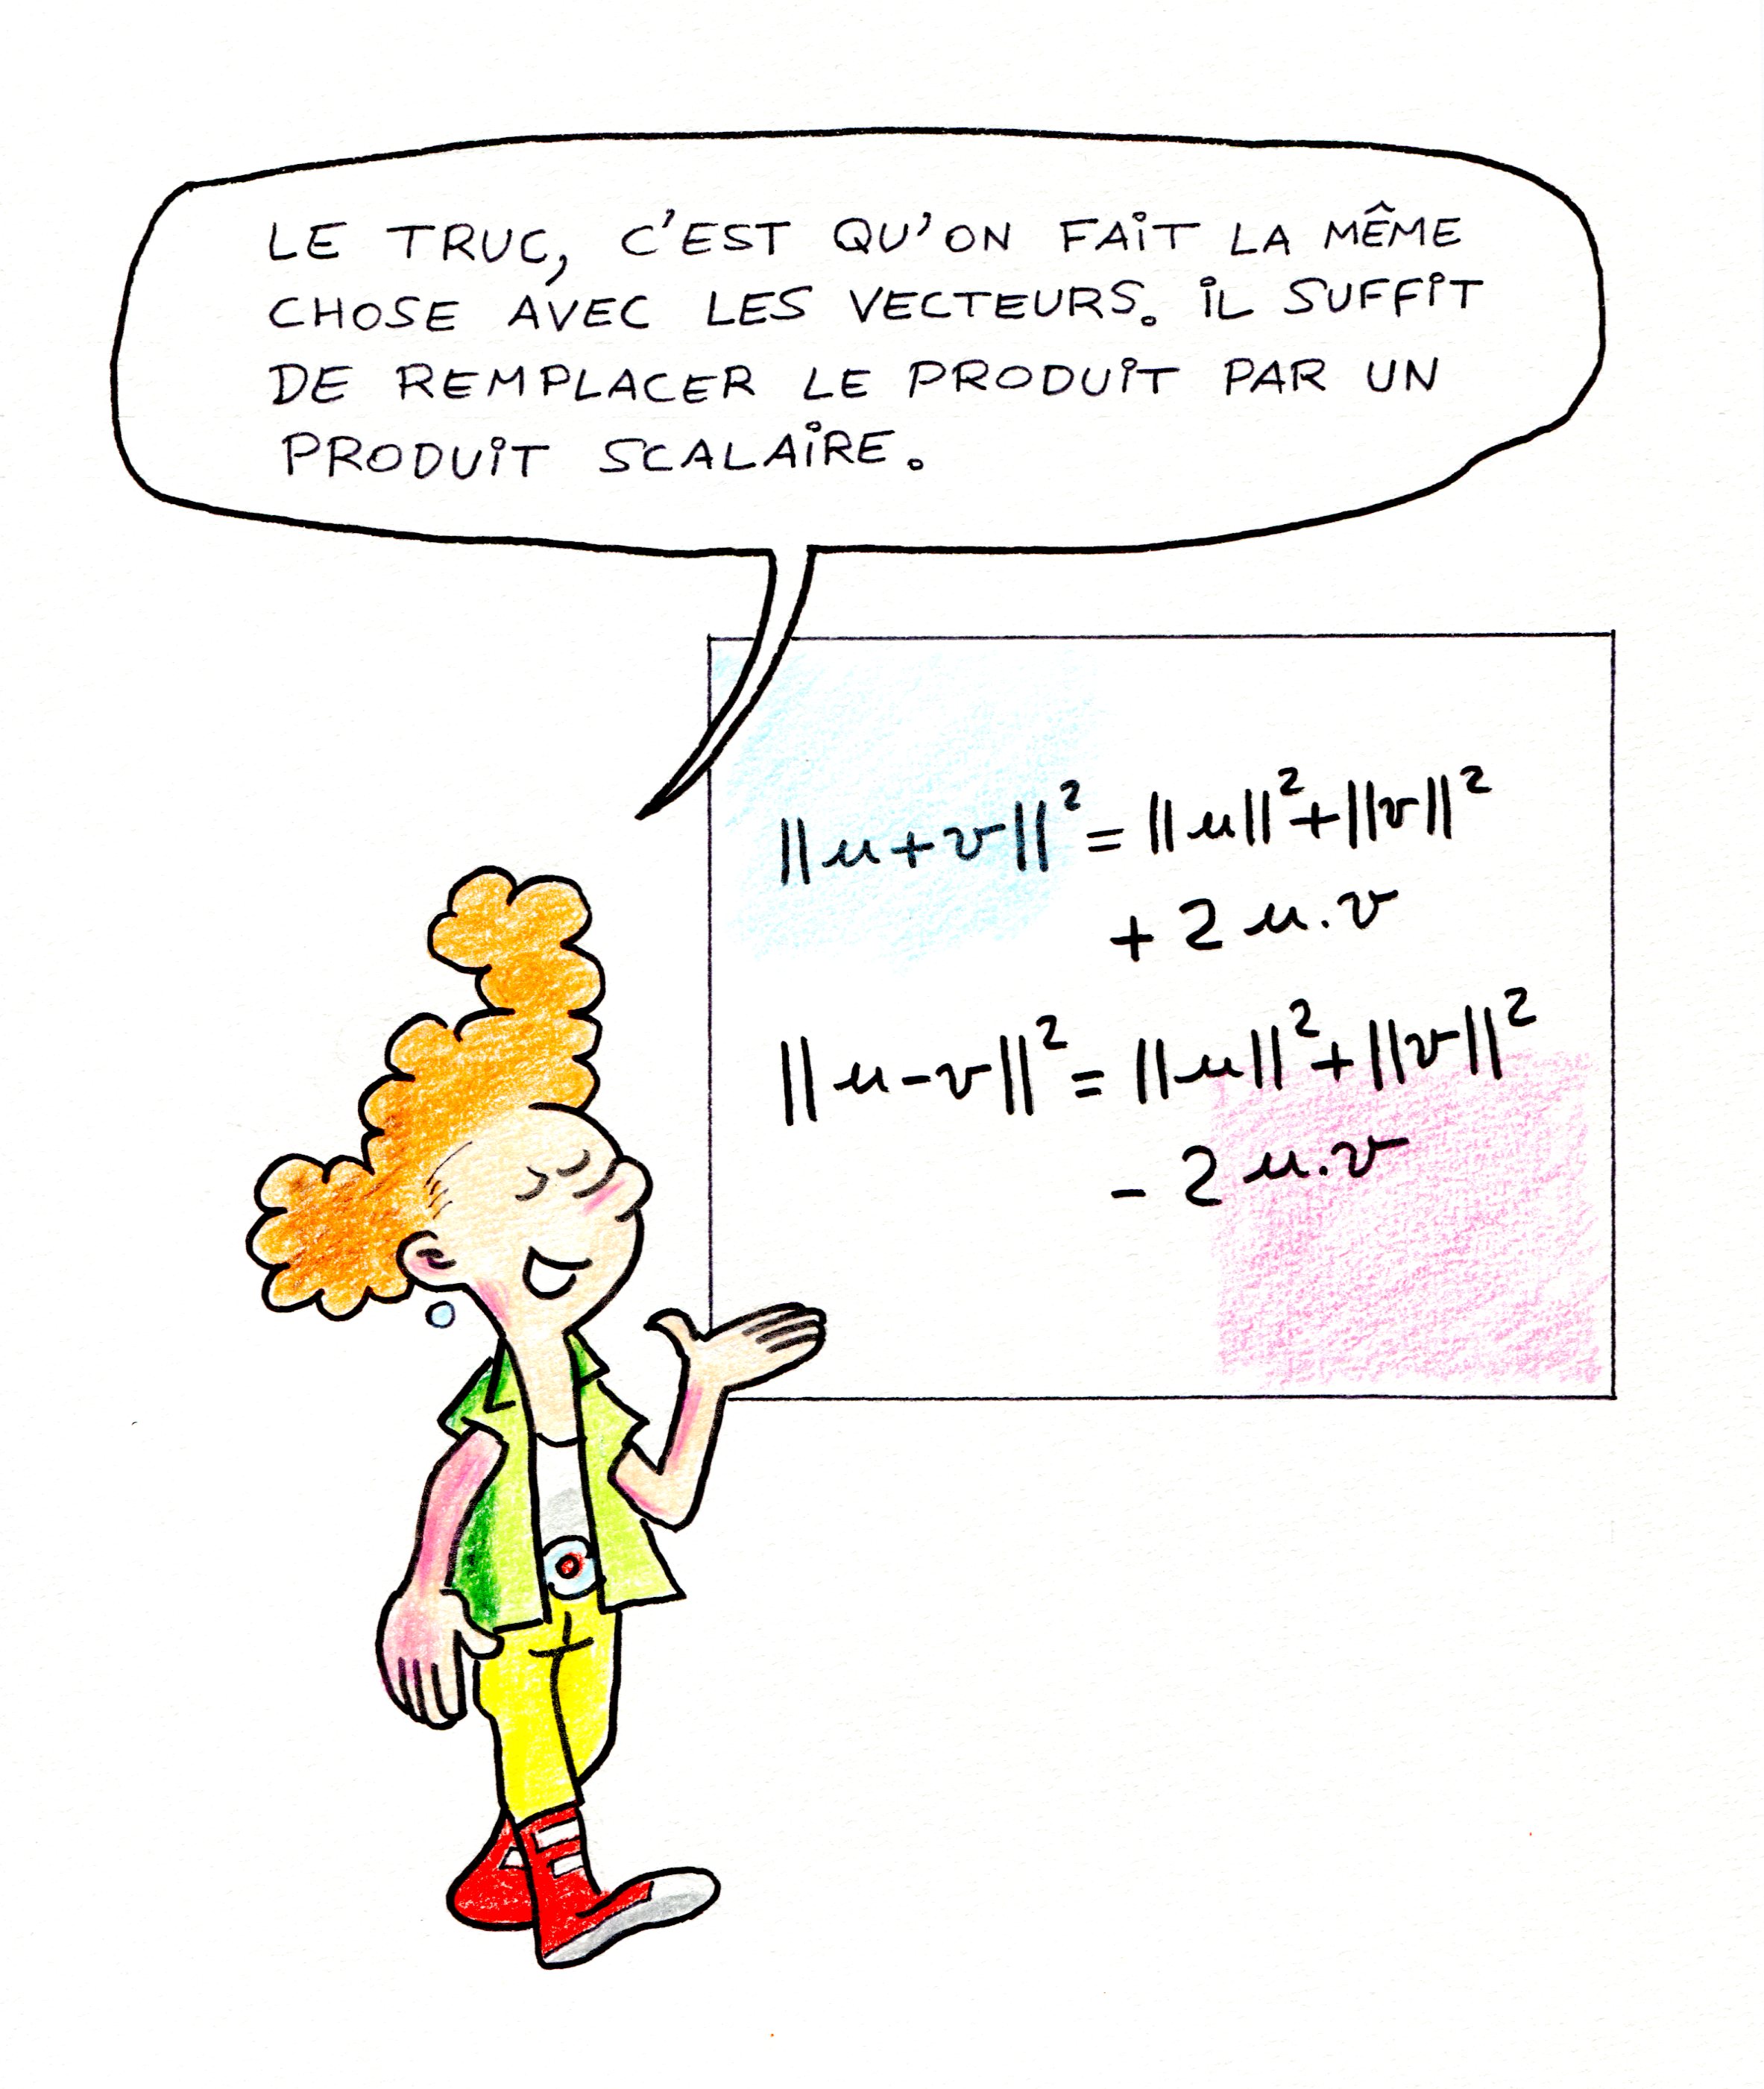 LE TRUC, C'EST QU'ON FAIT LA MÊME
CHOSE AVEC LES VECTEURS. IL SUFFIT
DE REMPLACER LE PRODUIT PAR UN
PRODUIT SCALAIRE.
||u+v||² = ||u||²+||v||²
+ 2 u.v
||u-v||² = ||u||²+||v||²
- 2 u.v